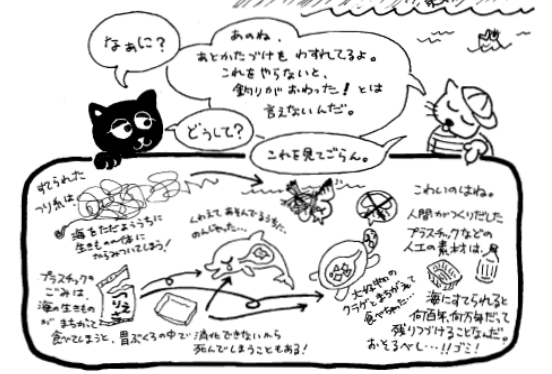 なぁに?
あのね、
あとかたづけも わすれてるよ。
これをやらないと、
釣りがおわった!とは
言えないんだ。
どうして?
これを見てごらん。
すてられた
つり糸は、
海をただようちに
生きもの体に
からみついてしまう!
くわえて あそんでるうちに、
のんじゃった…
大好物の
クラゲとまちがえて
食べちゃった…
プラスチックの
ごみは、
海の生きもの
が まちがって
食べてしまうと、胃ぶくろの中で 消化できないから
死んでしまうこともある!
こわいのはね。
人間がつくりだした
プラスチックなどの
人工の素材は、
海にすてられると
何百年、何万年だって
残りつづけることなんだ。
おそるべし…!!ゴミ!